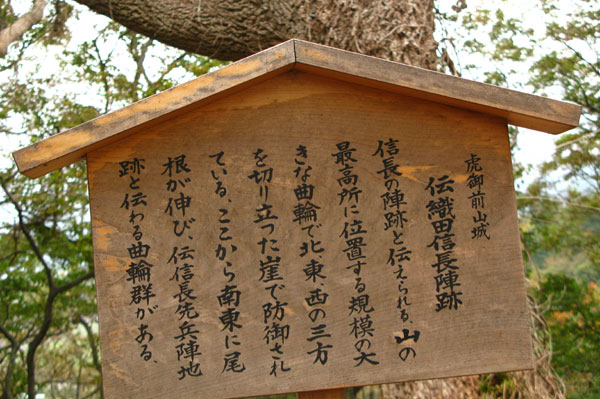 虎御前山城
伝織田信長陣跡
信長の陣跡と伝えられる、山の
最高所に位置する規模の大
きな曲輪で北、東、西の三方
を切り立った崖で防御され
ている。ここから南東に尾
根が伸び、伝信長先兵陣地
跡と伝わる曲輪群がある。